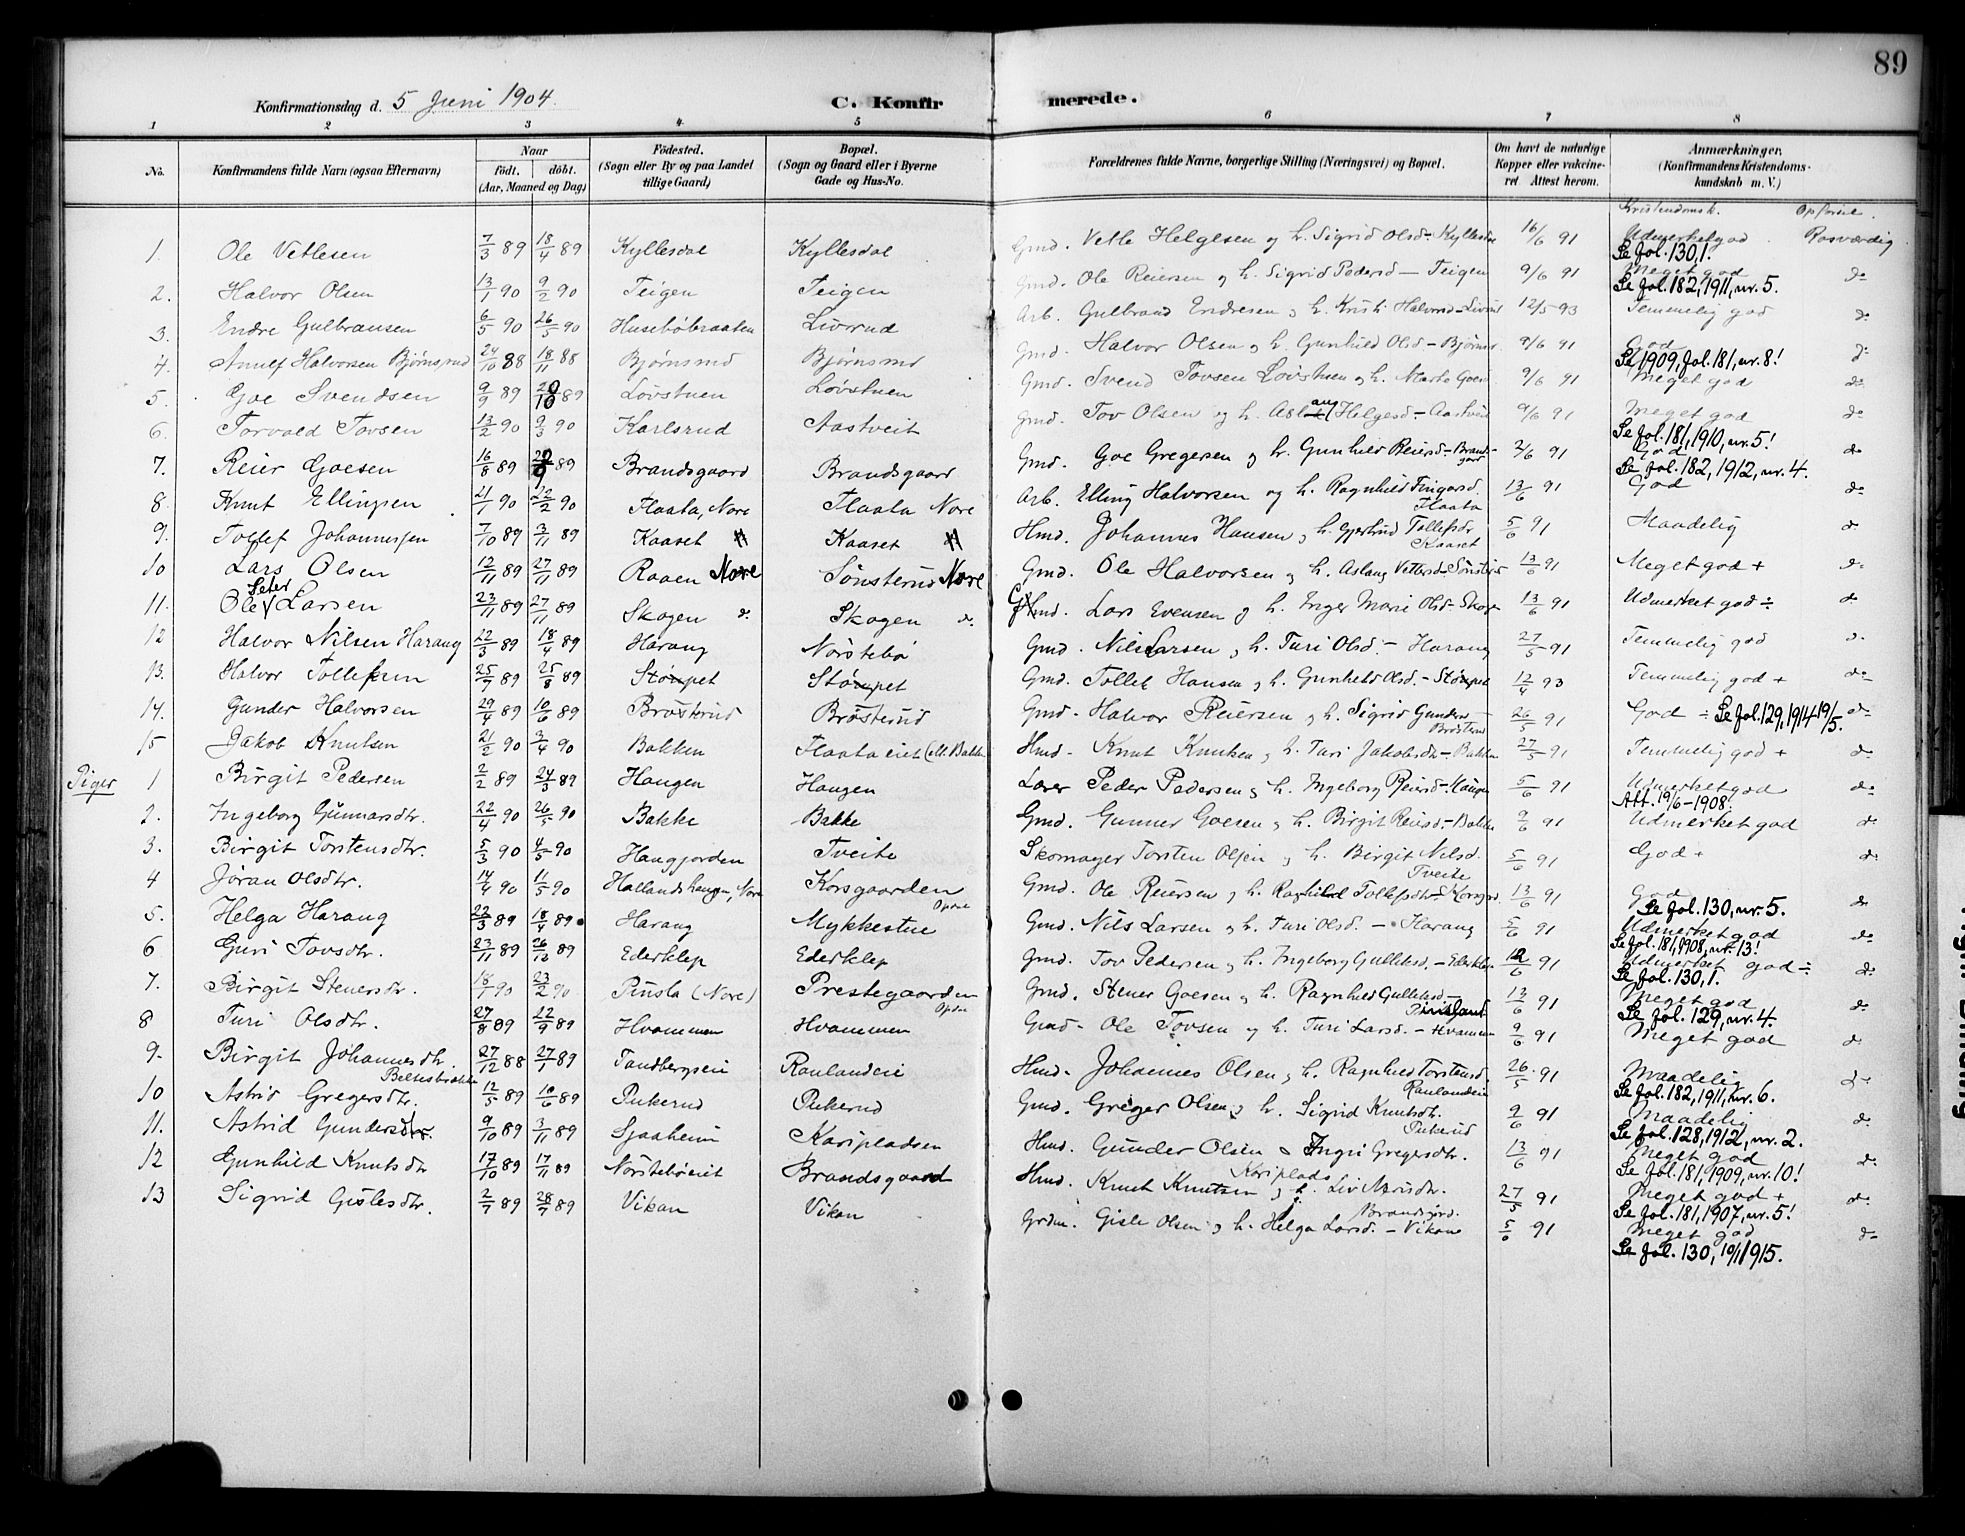 89
Konfirmationsdag d. 5 Juni 1904. C. Konfirmerede.
1 2 3 4 5 6 7 8
No. Konfirmandens fulde Navn (ogsaa Efternavn) Naar födt. döbt. (Aar, Maaned og Dag) Födested. (Sogn eller By og paa Landet tillige Gaard) Bopæl. (Sogn og Gaard eller i Byerne Gade og Hus-No. Forældrenes fulde Navne, borgerlige Stilling (Næringsvei) og Bopæl. Om havt de naturlige Kopper eller vakcineret Attest herom. Anmærkninger, (Konfirmandens Kristendomskundskab m. V.)
Kristendomsk. Opførsel.
1. Ole Vetlesen 7/3 89 18/4 89 Kyllesdal Kyllesdal Gmd. Vetle Helgesen og h. Sigrid Olsd - Kyllesdal 16/6 91 Udmerket god. Rosværdig.
Se fol. 130, 1.
2. Halvor Olsen 13/1 90 9/2 90 Teigen Teigen Gmd. Ole Reiersen og h. Sigrid Pedersd - Teigen 9/6 91 Meget god do
Se fol. 182, 1911, nr. 5.
3. Endre Gulbransen 6/5 90 26/5 90 Husebøbraaten Livrud Arb. Gulbrand Endresen og h. Kristi Halvorsd - Livrud 12/5 93 Temmelig god do
4. Halvorsen Bjørnsrud 24/10 88 18/11 88 Bjørnsrud Bjørnsrud Gmd. Halvor Olsen og h. Gunhild Olsd - Bjørnsr. 9/6 91 God do
Se 1909, fol. 181, nr. 8!
5. Goe Svendsen 9/9 89 20/10 89 Løvstuen Løvstuen Gmd. Svend Tovsen Løvstuen og h. Marte Goesd 9/6 91 Meget god do
6. Torvald Tovsen 13/2 90 9/3 90 Karlsrud Aastveit Gmd. Tov Olsen og h. Aslaug Helgesd - Aastveid 9/6 91 Meget god do
Se fol. 181, 1910, nr. 5!
7. Reier Goesen 16/8 89 29/9 89 Brandsgaard Brandsgaard Gmd. Goe Gregersen og h. Gunhild Reiersd - Brandsgaar 2/6 91 God do
Se fol. 182, 1912, nr. 4.
8. Knut Ellingsen 21/1 90 22/2 90 Flaata, Nore Flaata Nore Arb. Elling Halvorsen og h. Ragnhild Fingarsd. Flaata 13/6 91 God do
9. Tollef Johannessen 7/10 89 3/11 89 Kaaset Kaaset Hmd. Johannes Hansen og h. Gjertrud Tollefsdr Kaaset 5/6 91 Maadelig do
10 Lars Olsen 12/11 89 27/11 89 Raaen Nore Sønsterud Nore Gmd. Ole Halvorsen og h. Aslaug Vetlesd - Sønsterud 13/6 91 Meget god + do
11. Ole Seter Larsen 23/11 89 27/11 89 Skogen do Skogen do Gmd. Lars Evensen og h. Inger Marie Olsd - Skogen 13/6 91 Udmerket god ÷ do
12 Halvor Nilsen Harang 22/3 89 18/4 89 Harang Nørstebø Gmd. Nils Larsen og h. Turi Olsd. - Harang 27/5 91 Temmelig god do
13. Halvor Tollefsen 25/7 89 25/8 89 Støupet Støupet Gmd. Tollef Hansen og h. Gunhild Olsd. - Støupet 12/4 93 Temmelig god + do
14. Gunder Halvorsen 29/4 89 10/6 89 Brøsterud Brøsterud Gmd. Halvor Reiersen og h. Sigrid Gundersd - Brøsterud 26/5 91 God ÷ Se fol. 129, 1914 19/5. do
15 Jakob Knutsen 21/2 90 3/4 90 Bakken Flaata eiet (ell. Bakken Hmd. Knut Knutsen og h. Turi Jakobsdr - Bakken 27/5 91 Temmelig god + do
Piger
1 Birgit Pedersen 2/2 89 24/3 89 Haugen Haugen Lærer Peder Pedersen og h. Ingeborg Reiersd - Haugen 5/6 91 Udmerket god do
Att. 19/6 - 1908.
2. Ingeborg Gunnarsdtr. 22/4 90 26/5 90 Bakke Bakke Gmd. Gunner Goesen og h. Birgit Reiersd. - Bakke 9/6 91 Udmerket god do
3. Birgit Torstensdtr. 5/3 90 4/5 90 Haugjorden Tveite Skomager Torsten Olsen og h. Birgit Nilsd. Tveite 5/6 91 God + do
4 Jøran Olsdtr. 14/4 90 11/5 90 Hallandshaugen, Nore Korsgaarden Opdal Gmd. Ole Reiersen og h. Ragnhild Tollefsdtr - Korsgrd. 13/6 91 God do
Se fol. 130, nr. 5.
5. Helga Harang 22/3 89 18/4 89 Harang Mykkestue Gmd. Nils Larsen og h. Turi Olsd. - Harang 5/6 91 Udmerket god do
Se fol. 181, 1908, nr. 13!
6 Guri Tovsdtr. 23/11 89 26/12 89 Ederklep Ederklep Gmd. Tov Pedersen og h. Ingeborg Gulleksd. - Ederklep 12/6 91 Udmerket god ÷ do
Se fol. 130, 1.
7. Birgit Stenersdtr. 18/1 90 23/2 90 Pinsla (Nore) Prestegaarden Opdal Gmd. Stener Goesen og h. Ragnhild Gulleksd - 13/6 91 Meget god do
Se fol. 129, nr. 4.
8 Turi Olsdtr. 27/8 89 22/9 89 Hvammen Hvammen Gmd. Ole Tovsen og h. Turi Larsd. - Hvammen 9/6 91 Meget god do
9. Birgit Johannesdtr. 27/12 88 27/1 89 Tandbergseie Raulandeie Hmd. Johannes Olsen og h. Ragnhild Torstensd Raulandeie 26/5 91 Maadelig do
Se fol. 182, 1911, nr. 6.
10 Astrid Gregersdtr. Beltesbrække 12/5 89 10/6 89 Pukerud Pukerud Gmd. Greger Olsen og h. Sigrid Knutsdtr. Pukerud 9/6 91 Maadelig do
Se fol. 128, 1912, nr. 2.
11. Astrid Gundersdtr. 9/10 89 3/11 89 Sjaaheim Karipladsen Hmd. Gunder Olsen & Ingri Gregersdtr. Karipladsn 13/6 91 Meget god do
Se fol. 181, 1909, nr. 10!
12 Gunhild Knutsdtr 17/10 89 17/11 89 Nørstebøeiet Brandsgaard Hmd. Knut Knutsen og h. Liv Nerisdtr. Brandsgrd. 27/5 91 Meget god + do
Se fol. 181, 1907, nr. 5!
13 Sigrid Gislesdtr. 2/7 89 28/7 89 Vikan Vikan Grdm. Gisle Olsen og h. Helga Larsd. - Vikane 5/6 91 Meget god do
Se fol. 130, 10/1 1915.